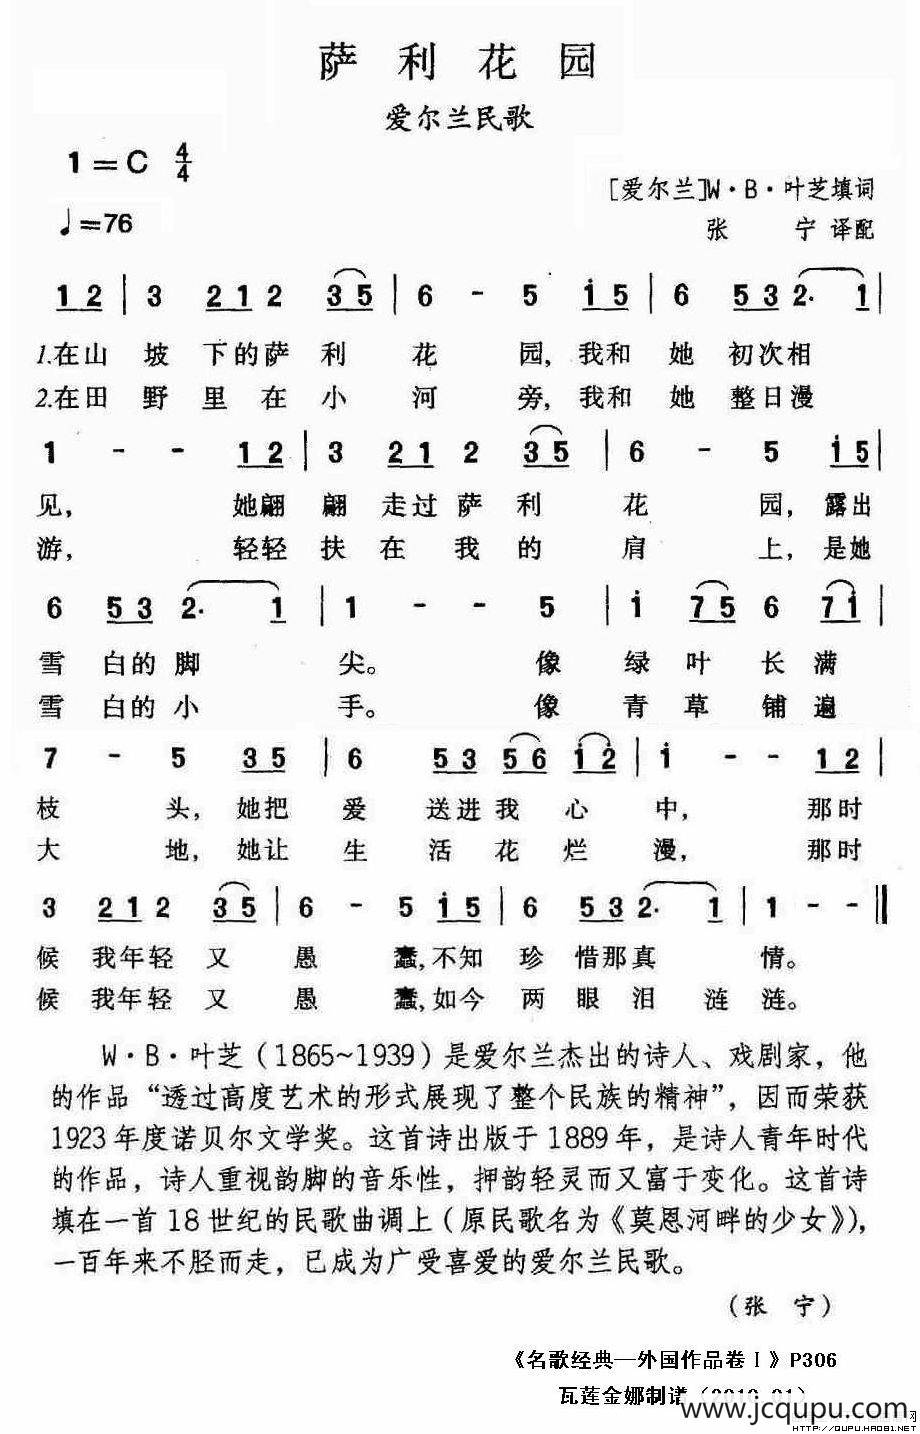 萨利花园
爱尔兰民歌
1=C 4/4
[爱尔兰]W·B·叶芝填词
♩=76
张 宁 译配
1 2 | 3 2 1 2 3 5 | 6 - 5 i 5 | 6 5 3 2· 1 |
1.在山 坡 下的萨 利 花 园, 我和 她 初次相
2.在田 野 里 在 小 河 旁, 我和 她 整日漫
1 - - 1 2 | 3 2 1 2 3 5 | 6 - 5 i 5 |
见, 她翩 翩 走过萨 利 花 园, 露出
游, 轻轻 扶 在 我 的 肩 上, 是她
6 5 3 2· 1 | 1 - - 5 | i 7 5 6 7 i |
雪 白的脚 尖。 像 绿 叶 长 满
雪 白的小 手。 像 青 草 铺 遍
7 - 5 3 5 | 6 5 3 5 6 i 2̇ | i - - 1 2 |
枝 头, 她把 爱 送进我 心 中, 那时
大 地, 她让 生 活 花 烂 漫, 那时
3 2 1 2 3 5 | 6 - 5 i 5 | 6 5 3 2· 1 | 1 - - ‖
候 我年轻 又 愚 蠢, 不知 珍 惜那真 情。
候 我年轻 又 愚 蠢, 如今 两 眼 泪 涟 涟。
W·B·叶芝(1865~1939)是爱尔兰杰出的诗人、戏剧家, 他
的作品“透过高度艺术的形式展现了整个民族的精神”, 因而荣获
1923年度诺贝尔文学奖。这首诗出版于1889年, 是诗人青年时代
的作品, 诗人重视韵脚的音乐性, 押韵轻灵而又富于变化。这首诗
填在一首18世纪的民歌曲调上(原民歌名为《莫恩河畔的少女》),
一百年来不胫而走, 已成为广受喜爱的爱尔兰民歌。
(张 宁)
《名歌经典—外国作品卷Ⅰ》P306
瓦莲金娜制谱(2010 01)
www.jcqupu.com
HTTP://QUPU.HAO81.NET